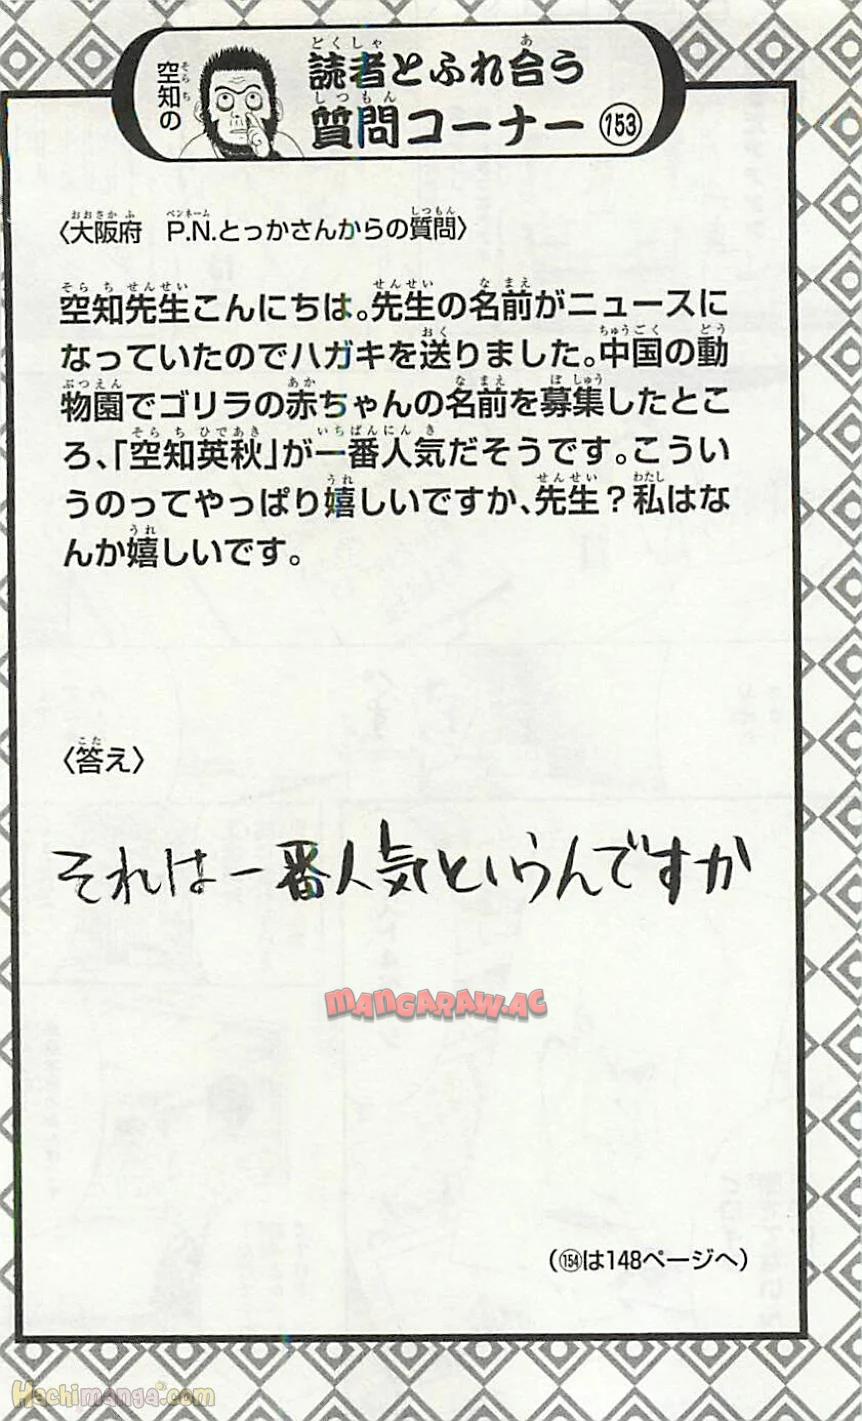 空知の
読者とふれ合う
質問コーナー 153
〈大阪府　P.N.とっかさんからの質問〉
空知先生こんにちは。先生の名前がニュースに
なっていたのでハガキを送りました。中国の動
物園でゴリラの赤ちゃんの名前を募集したとこ
ろ、「空知英秋」が一番人気だそうです。こうい
うのってやっぱり嬉しいですか、先生？私はな
んか嬉しいです。
〈答え〉
それは一番人気というんですか
MANGARAW.AC
(154は148ページへ)
Hachimanga.com